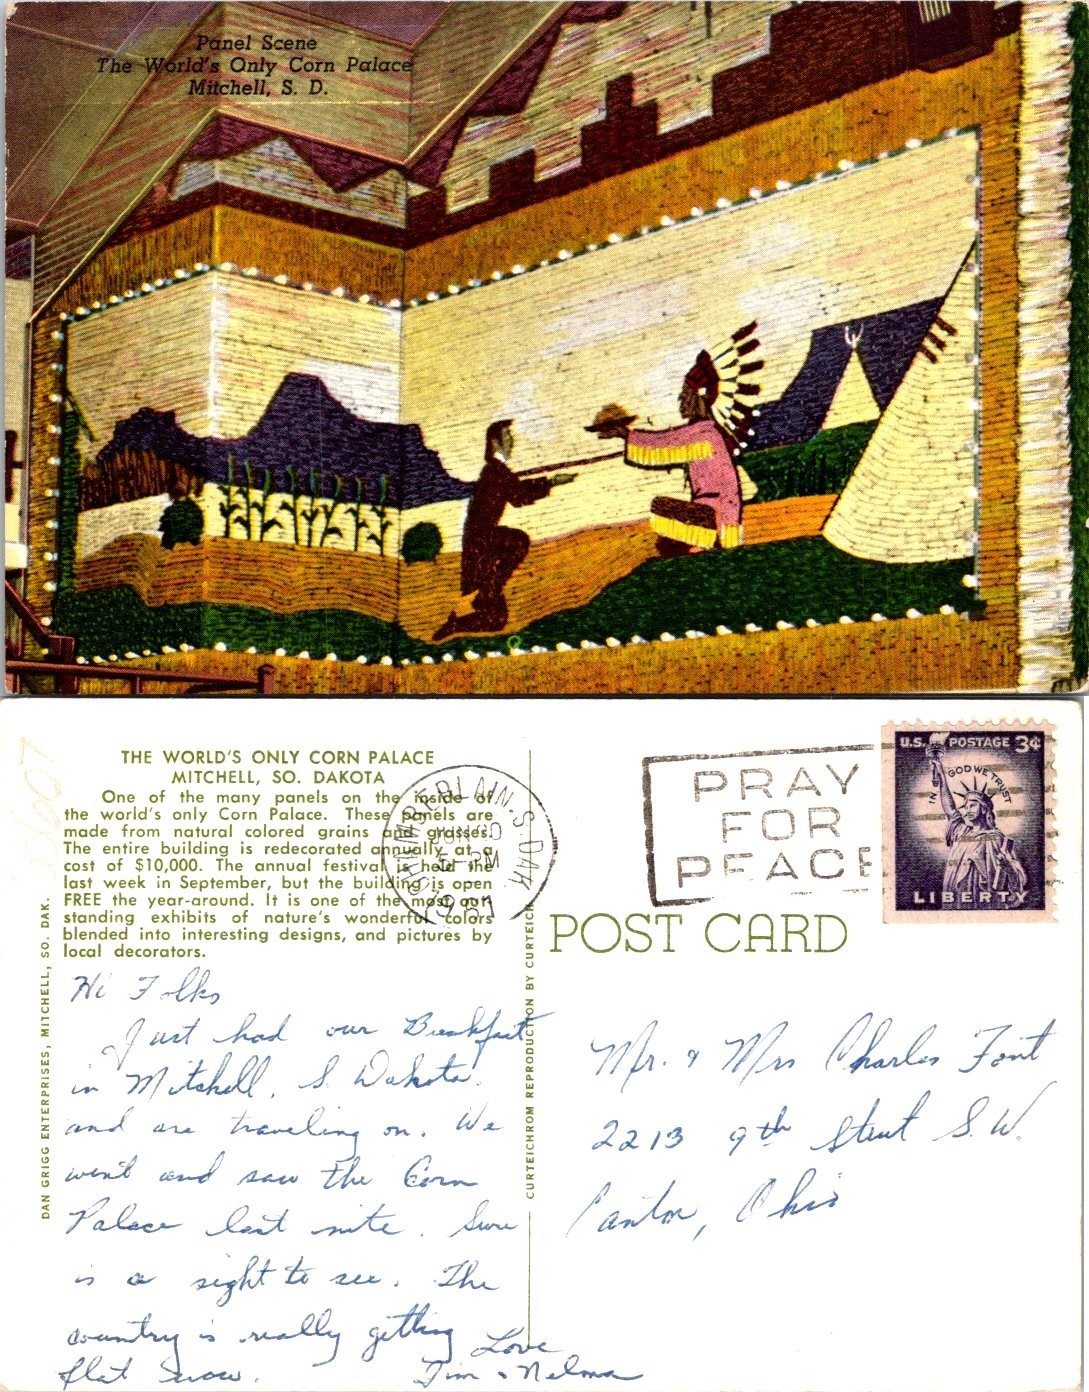 Panel Scene
The World's Only Corn Palace
Mitchell, S. D.
THE WORLD'S ONLY CORN PALACE
MITCHELL, SO. DAKOTA
One of the many panels on the inside of
the world's only Corn Palace. These panels are
made from natural colored grains and grasses.
The entire building is redecorated annually at a
cost of $10,000. The annual festival is held the
last week in September, but the building is open
FREE the year-around. It is one of the most out
standing exhibits of nature's wonderful colors
blended into interesting designs, and pictures by
local decorators.
DAN GRIGG ENTERPRISES, MITCHELL, SO. DAK.
Hi Folks
Just had our Breakfast
in Mitchell, S. Dakota.
and are traveling on. We
went and saw the Corn
Palace last nite. Sure
is a sight to see. The
country is really getting
flat now.
Love
Jim & Nelma
CURTEICHROM REPRODUCTION BY CURTEICH
CHAMBERLAIN, S. DAK.
JUN
5 - PM
1957
PRAY
FOR
PEACE
U.S. POSTAGE 3¢
IN GOD WE TRUST
LIBERTY
POST CARD
Mr. & Mrs Charles Font
2213 9th Street S.W.
Canton, Ohio